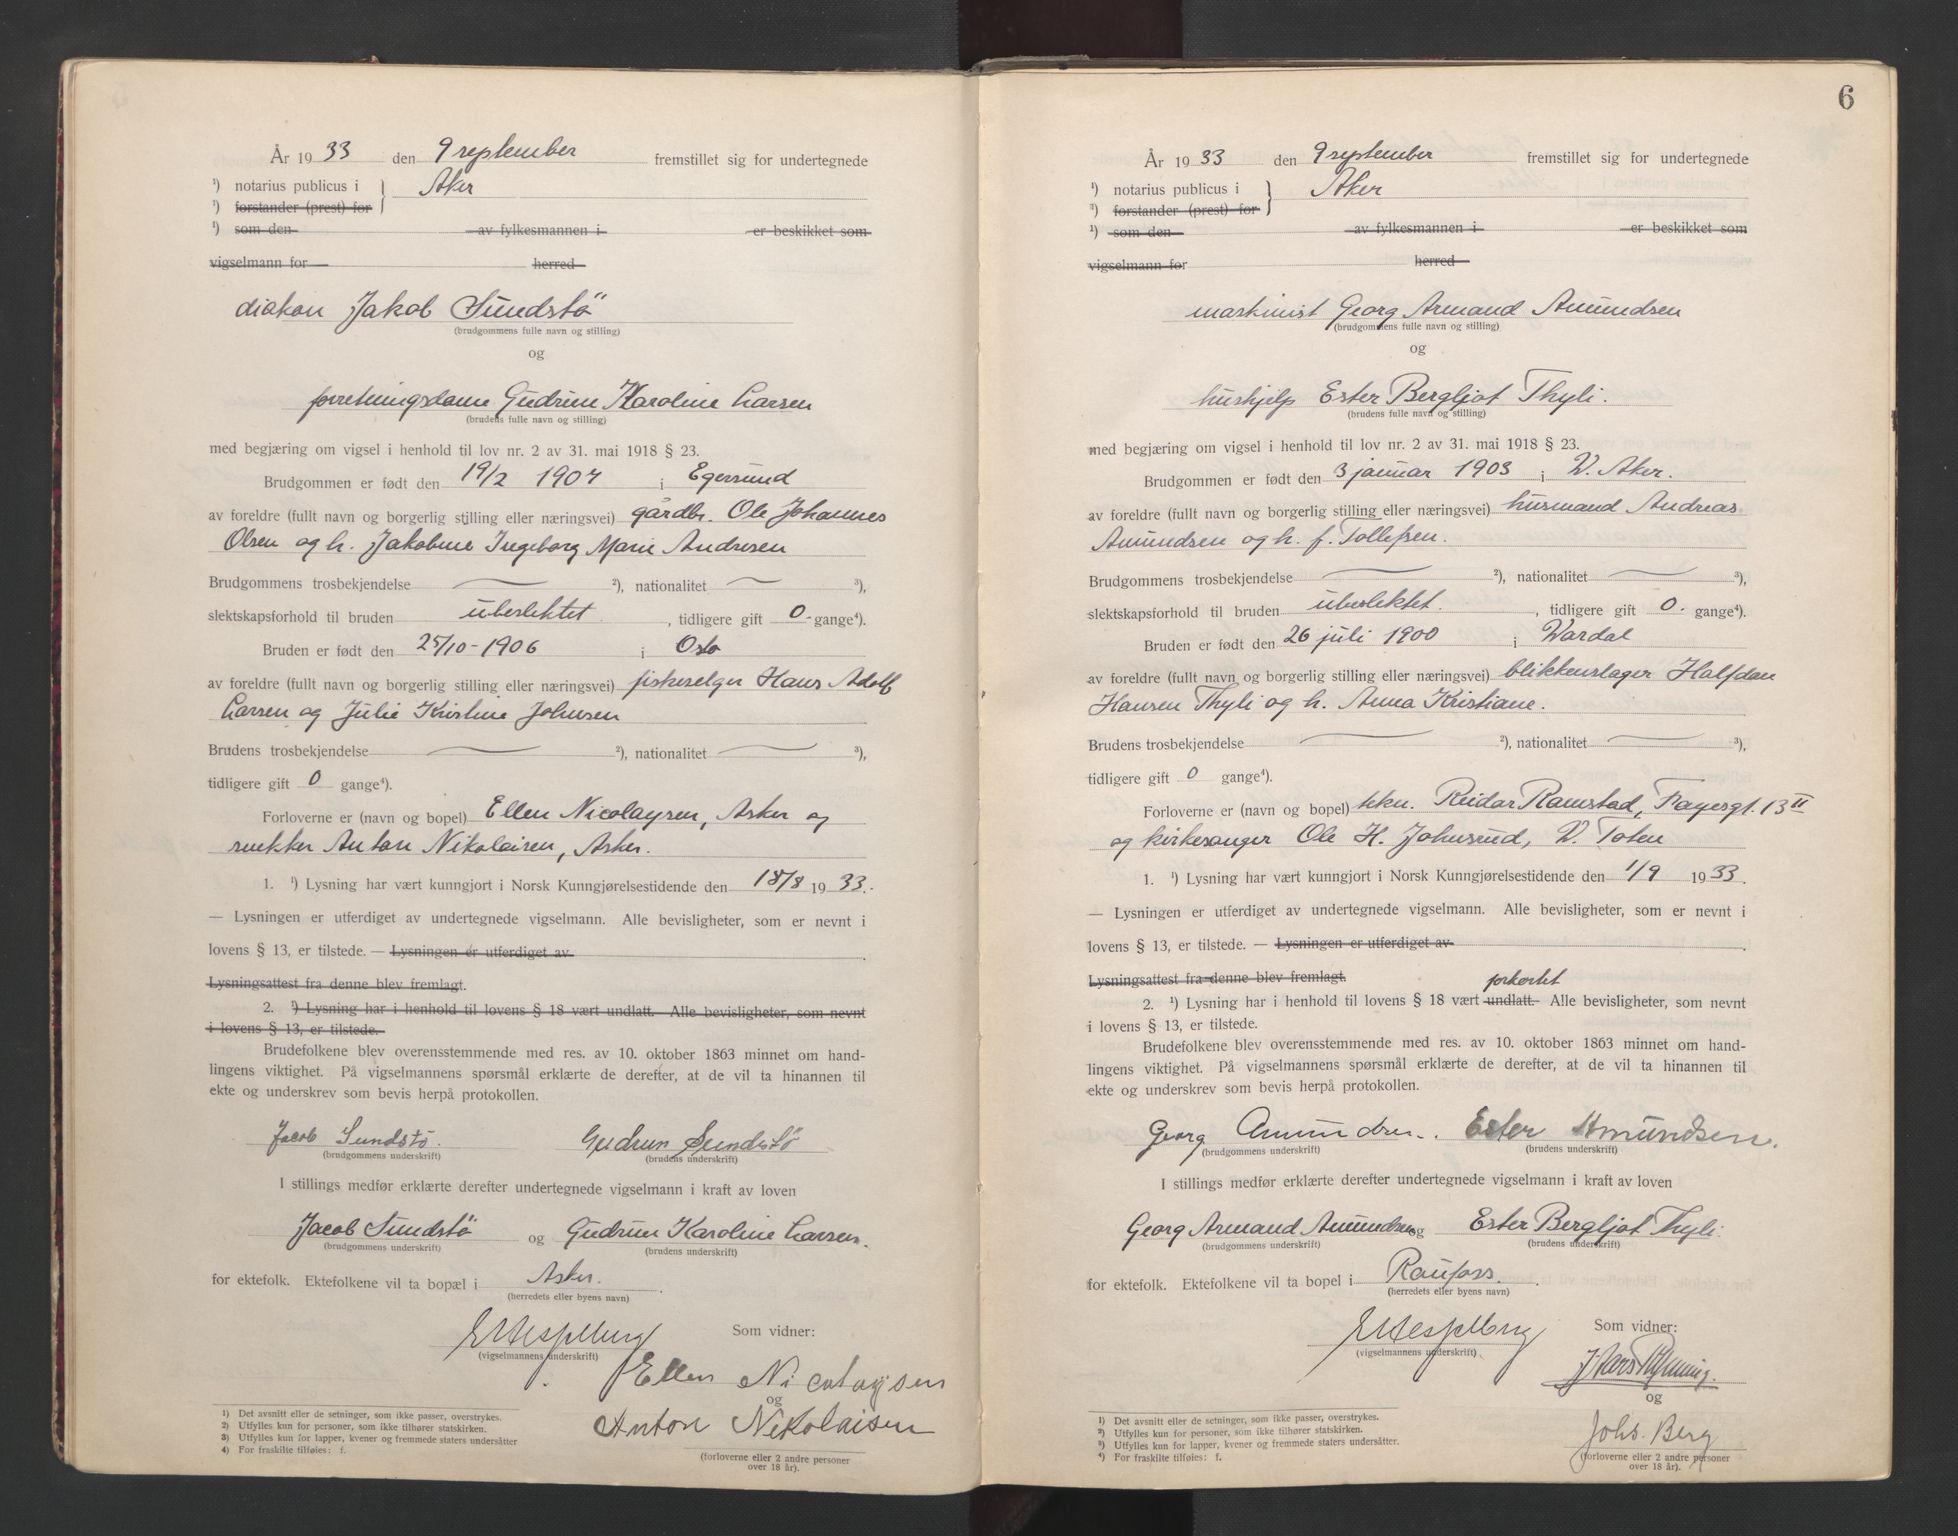 År 19 33 den 9 september fremstillet sig for undertegnede
¹) notarius publicus i } Aker
¹) forstander (prest) for
¹) som den av fylkesmannen i er beskikket som
vigselmann for herred
diakon Jakob Sundstö
(brudgommens fulle navn og stilling)
og
forretningsdame Gudrun Karoline Larsen
(brudens fulle navn og stilling)
med begjæring om vigsel i henhold til lov nr. 2 av 31. mai 1918 § 23.
Brudgommen er født den 19/2 1907 i Egersund
av foreldre (fullt navn og borgerlig stilling eller næringsvei) gårdbr. Ole Johannes
Olsen og h. Jakobine Ingeborg Marie Andresen
Brudgommens trosbekjendelse — ²), nationalitet — ³),
slektskapsforhold til bruden ubeslektet , tidligere gift 0 - gange⁴).
Bruden er født den 25/10-1906 i Oslo
av foreldre (fullt navn og borgerlig stilling eller næringsvei) fiskeselger Hans Adolf
Larsen og Julie Kristine Johnsen
Brudens trosbekjendelse — ²), nationalitet — ³),
tidligere gift 0 gange⁴).
Forloverne er (navn og bopel) Ellen Nicolaysen, Asker og
snekker Anton Nikolaisen, Asker.
1. ¹) Lysning har vært kunngjort i Norsk Kunngjørelsestidende den 18/8 1933.
— Lysningen er utferdiget av undertegnede vigselmann. Alle bevisligheter, som er nevnt i
lovens § 13, er tilstede. — Lysningen er utferdiget av
Lysningsattest fra denne blev fremlagt.
2. ¹) Lysning har i henhold til lovens § 18 vært undlatt. Alle bevisligheter, som nevnt
i lovens § 13, er tilstede.
Brudefolkene blev overensstemmende med res. av 10. oktober 1863 minnet om hand-
lingens viktighet. På vigselmannens spørsmål erklærte de derefter, at de vil ta hinannen til
ekte og underskrev som bevis herpå protokollen.
Jacob Sundstö. Gudrun Sundstö
(brudgommens underskrift) (brudens underskrift)
I stillings medfør erklærte derefter undertegnede vigselmann i kraft av loven
Jacob Sundstö og Gudrun Karoline Larsen.
(brudgommens underskrift) (brudens underskrift)
for ektefolk. Ektefolkene vil ta bopæl i Asker.
(herredets eller byens navn)
Som vidner:
(vigselmannens underskrift)
Ellen Nicolaysen
og
Anton Nikolaisen
(forloverne eller 2 andre personer
over 18 år).
¹) Det avsnitt eller de setninger, som ikke passer, overstrykes.
²) Utfylles kun for personer, som ikke tilhører statskirken.
³) Utfylles kun for lapper, kvener og fremmede staters undersåtter
⁴) For fraskilte tilføies: f.
6
År 19 33 den 9 september fremstillet sig for undertegnede
¹) notarius publicus i } Aker
¹) forstander (prest) for
¹) som den av fylkesmannen i er beskikket som
vigselmann for herred
maskinist Georg Armand Amundsen
(brudgommens fulle navn og stilling)
og
hushjelp Ester Bergljot Thyli.
(brudens fulle navn og stilling)
med begjæring om vigsel i henhold til lov nr. 2 av 31. mai 1918 § 23.
Brudgommen er født den 3 januar 1903 i V. Aker.
av foreldre (fullt navn og borgerlig stilling eller næringsvei) husmand Andreas
Amundsen og h. f. Tollefsen.
Brudgommens trosbekjendelse — ²), nationalitet — ³),
slektskapsforhold til bruden ubeslektet. , tidligere gift 0 - gange⁴).
Bruden er født den 26 juli 1900 i Vardal
av foreldre (fullt navn og borgerlig stilling eller næringsvei) blikkenslager Halfdan
Hansen Thyli og h. Anna Kristiane.
Brudens trosbekjendelse — ²), nationalitet — ³),
tidligere gift 0 gange⁴).
Forloverne er (navn og bopel) tekn. Reidar Ramstad, Fayesgt. 13 II
og kirkesanger Ole H. Johnsrud, V. Toten
1. ¹) Lysning har vært kunngjort i Norsk Kunngjørelsestidende den 1/9 1933.
— Lysningen er utferdiget av undertegnede vigselmann. Alle bevisligheter, som er nevnt i
lovens § 13, er tilstede. — Lysningen er utferdiget av
Lysningsattest fra denne blev fremlagt. forkortet
2. ¹) Lysning har i henhold til lovens § 18 vært undlatt. Alle bevisligheter, som nevnt
i lovens § 13, er tilstede.
Brudefolkene blev overensstemmende med res. av 10. oktober 1863 minnet om hand-
lingens viktighet. På vigselmannens spørsmål erklærte de derefter, at de vil ta hinannen til
ekte og underskrev som bevis herpå protokollen.
Georg Amundsen. Ester Amundsen.
(brudgommens underskrift) (brudens underskrift)
I stillings medfør erklærte derefter undertegnede vigselmann i kraft av loven
Georg Armand Amundsen og Ester Bergljot Thyli.
(brudgommens underskrift) (brudens underskrift)
for ektefolk. Ektefolkene vil ta bopel i Raufoss.
(herredets eller byens navn)
Som vidner:
(vigselmannens underskrift)
og
Johs. Berg
(forloverne eller 2 andre personer
over 18 år).
¹) Det avsnitt eller de setninger, som ikke passer, overstrykes.
²) Utfylles kun for personer, som ikke tilhører statskirken.
³) Utfylles kun for lapper, kvener og fremmede staters undersåtter.
⁴) For fraskilte tilføies: f.